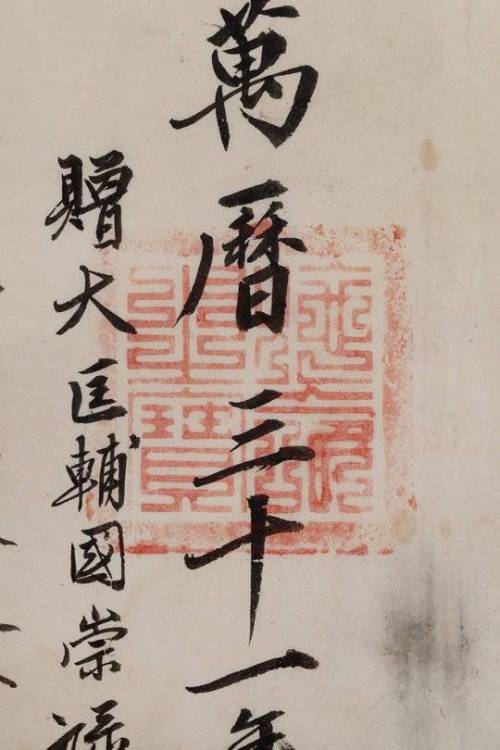 萬曆三十一年
贈大匡輔國崇祿